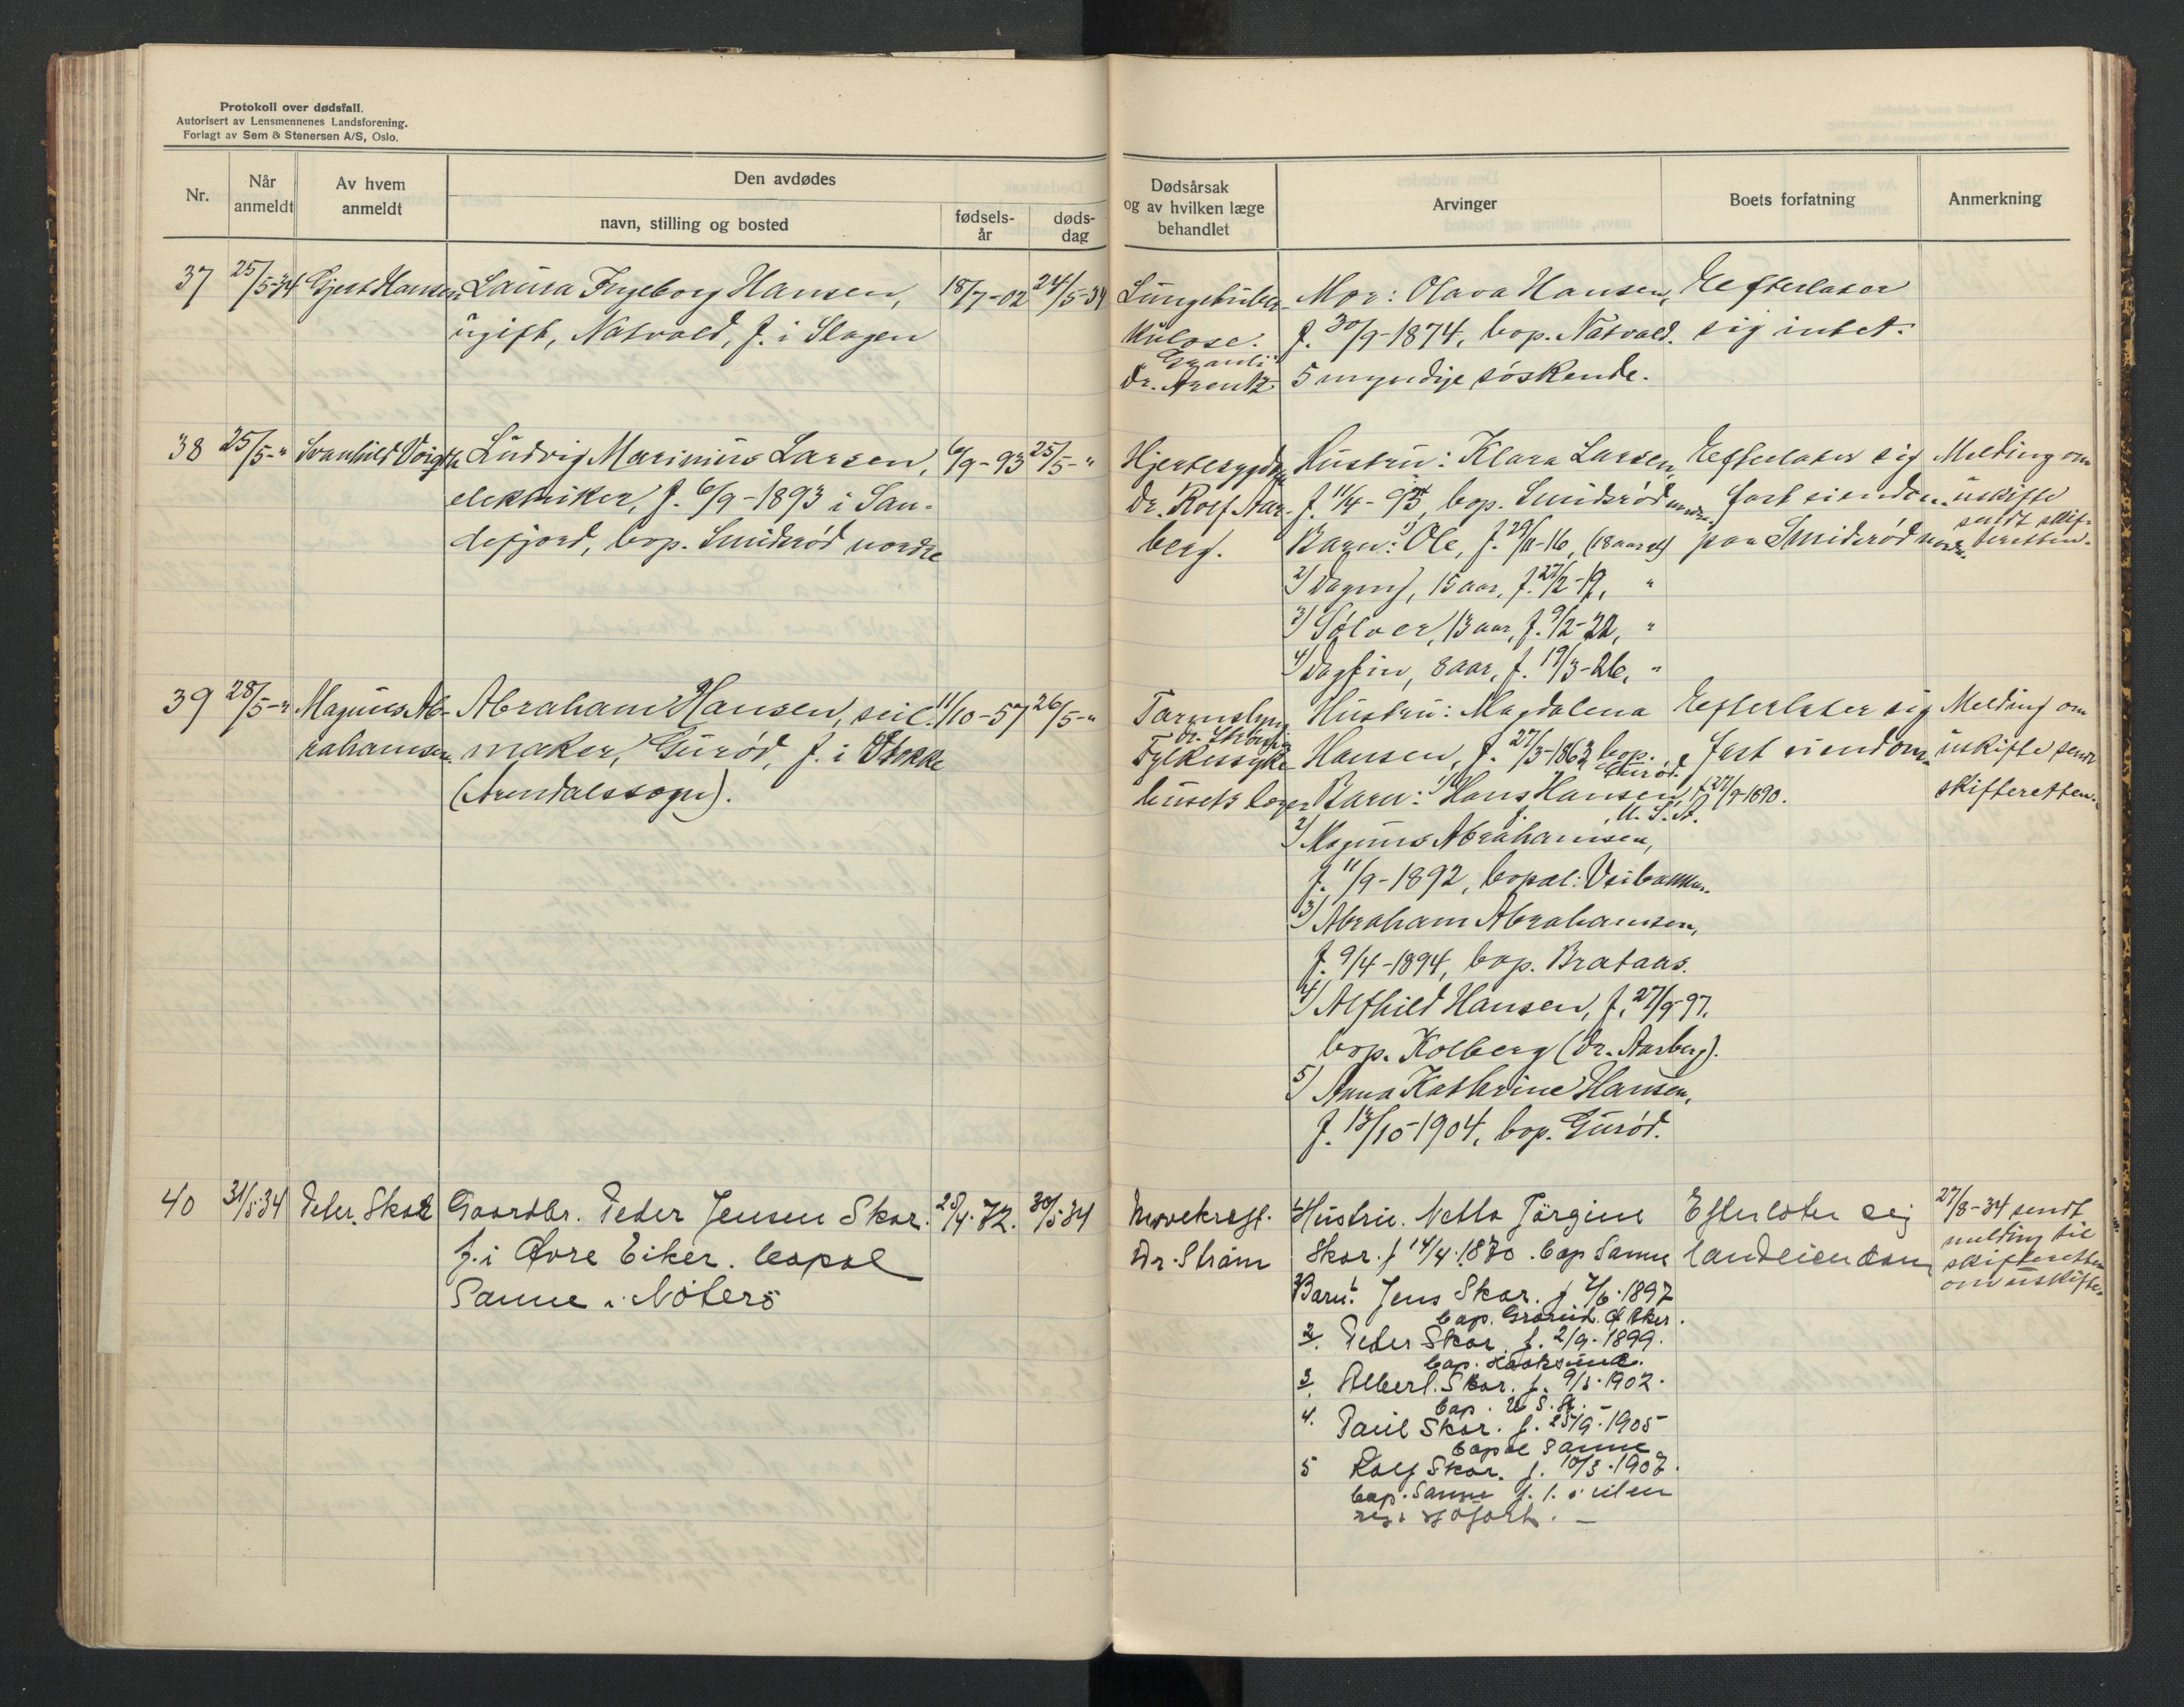 Protokoll over dødsfall.
Autorisert av Lensmennenes Landsforening.
Forlagt av Sem & Stenersen A/S, Oslo.
Nr.
Når anmeldt
Av hvem anmeldt
Den avdødes
navn, stilling og bosted
fødsels-år
døds-dag
Dødsårsak og av hvilken læge behandlet
Arvinger
Boets forfatning
Anmerkning
37 25/5-34 Gjert Hansen Laura Ingeborg Hansen, 18/7-02 24/5-34
ugift, Natvald, f. i Slagen
Lungetuber-
kulose.
Dr. Arentz
Mor: Olava Hansen,
f. 30/9-1874, bop. Natvald.
5 myndige søskende.
Efterlater
sig intet.
38 25/5-" Svanhild Voigt Ludvig Marinius Larsen, 6/9-93 25/5-"
elektriker, f. 6/9-1893 i San-
defjord, bop. Smidsrød nordre
Hjertesygdom
Dr. Rolf Aar-
berg.
Hustru: Klara Larsen,
f. 11/4-95, bop. Smidsrød nordre.
Barn: 1) Ole, f. 29/11-16, (18 aar gl)
2) Dagny, 15 aar, f. 27/2-19, "
3) Sølver, 13 aar, f. 9/2-22, "
4) Dagfin, 8 aar, f. 19/3-26, "
Efterlater sig
fast eiendom
paa Smidsrød nordre.
Melding om
uskifte
sendt skif-
teretten.
39 28/5-" Magnus Ab- Abraham Hansen, seil- 11/10-57 26/5-"
rahamsen maker, Gurød, f. i Stokke
(Arendalssogn).
Tarmslyng
Dr. Strøm
Fylkessyke-
husets læger
Hustru: Magdalena
Hansen, f. 27/3-1863 bop. Gurød.
Barn: 1) Hans Hansen, f. 27/9-1890.
U.S.A.
2) Magnus Abrahamsen,
f. 11/9-1892, bopæl: Veibakken.
3) Abraham Abrahamsen,
f. 9/4-1894, bop. Brataas.
4) Alfhild Hansen, f. 27/9-97.
bop. Kolberg (Dr. Aarberg).
5) Anna Kathrine Hansen,
f. 13/10-1904, bop. Gurød.
Efterlater sig
fast eiendom
Melding om
uskifte sendt
skifteretten.
40 31/5-34 Peter Skar Gaardbr. Peder Jensen Skar. 28/4.72. 30/5-34
f. i Øvre Eiker. bopæl
Sanne i Nøterø
Mavekræft.
Dr. Strøm
Hustru. Netta Jørgine
Skar. f 14/4.1870. bop Sanne
Barn: 1. Jens Skar. f 2/6.1897
bop. Grorud. Ø Aker.
2. Peder Skar. f. 2/9.1899.
bop. Hoksund.
3. Albert. Skar. f. 9/5.1902.
bop. U.S.A. -
4. Paul Skar. f. 25/9.1905
bopæl Sanne
5 Rolf Skar. f. 10/3.1907.
bop. Sanne f. t. i uten
riks sjøfart. -
Efterlater sig
landeiendom
27/8-34 sendt
melding til
skifteretten
om uskifte.